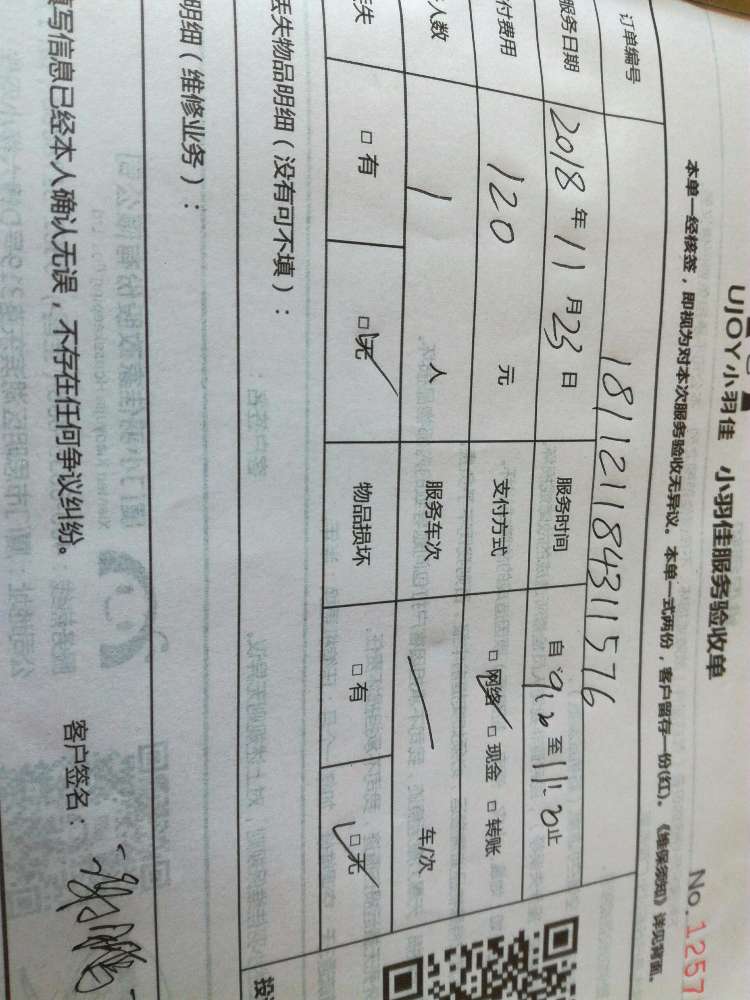 UJOY小羽佳 小羽佳服务验收单
No.1257
本单一经核签，即视为对本次服务验收无异议。本单一式两份，客户留存一份(红)。《维保须知》详见背面。
订单编号 181121184311576
服务日期 2018年11月23日 服务时间 自 9:20 至 11:20 止
付费用 120 元 支付方式 □网络 □现金 □转账
人数 1 人 服务车次 车/次
丢失 □有 □无 物品损坏 □有 □无
丢失物品明细（没有可不填）：
明细（维修业务）：
填写信息已经本人确认无误，不存在任何争议纠纷。 客户签名：